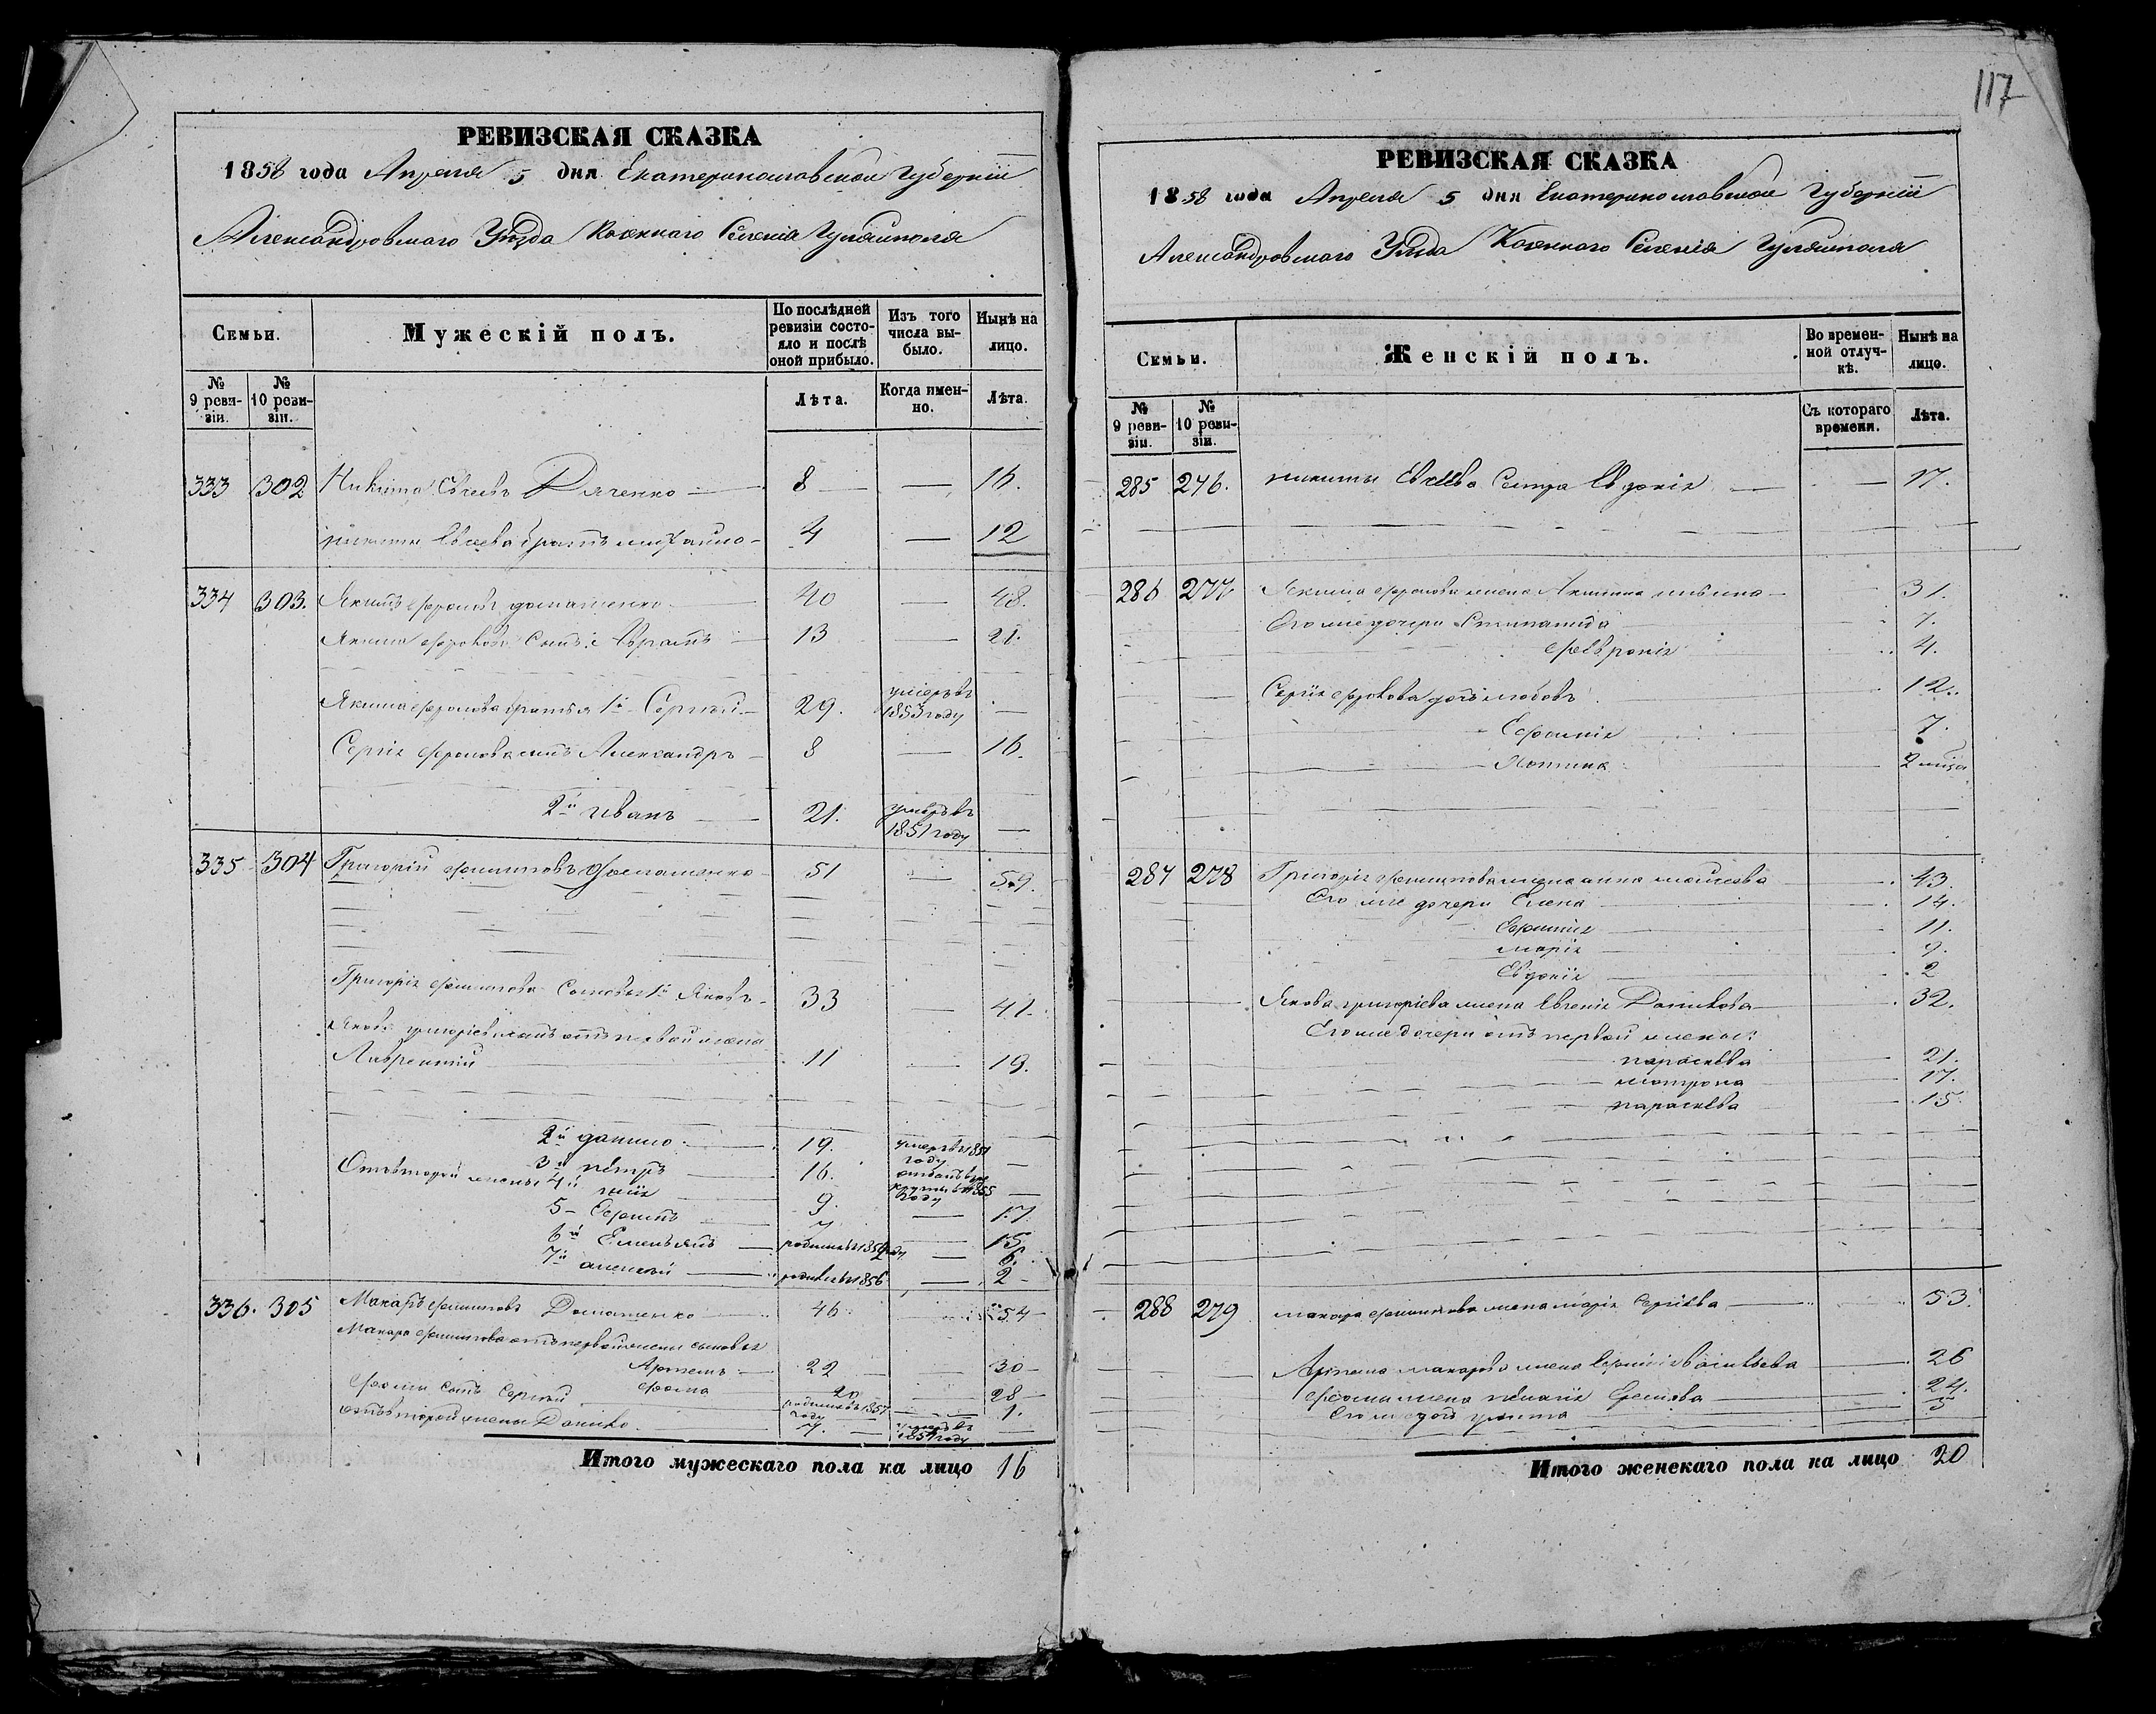 117
РЕВИЗСКАЯ СКАЗКА
1858 года Апреля 5 дня Екатеринославской Губерніи
Александровскаго Уѣзда Казеннаго Селенія Гуляйполя
Семьи. Мужескій полъ. По послѣдней ревизіи состояло и послѣ оной прибыло. Изъ того числа выбыло. Нынѣ на лицо.
№ 9 ревизіи. № 10 ревизіи. Лѣта. Когда именно. Лѣта.
333 302 Никита Евсеевъ Дяченко 8 — 16.
никиты Евсеева братъ михайло 4 — 12
334 303. Якимъ Фроловъ доматенко 40 — 48.
Якима Фролова сынъ 13 — 21.
Якима Фролова братья 1й Сергѣй 29. умеръ въ 1853 году —
Сергія Фролова сынъ Александръ 8 — 16.
2й иванъ 21. умеръ въ 1851 году —
335 304 Григорій Филиповъ 51 — 59.
Григорія Филипова Сыновья 1й Яковъ 33 — 41.
Якова григорieва сынъ отъ первой жены
Лаврентій 11 — 19.
2й данило 19. умеръ въ 1851 году —
3й петръ 16. 1855 году —
Отъ второй жены 4й 9. — 17.
5 Ефимъ 7 — 15.
6й Емельянъ родился въ 1852 году — 6.
7й алексѣй родился въ 1856 — 2
336. 305 Макаръ Филиповъ Доматенко 46 54
Макара Филипова отъ первой жены сыновья
Артемъ 22 — 30
Фома 20 28
Фомы сынъ Сергѣй родился въ 1857 году — 1.
отъ второй жены Данило 7. — умеръ въ 1851 году —
Итого мужескаго пола на лицо 16
РЕВИЗСКАЯ СКАЗКА
1858 года Апреля 5 дня Екатеринославской Губерніи
Александровскаго Уѣзда Казеннаго Селенія Гуляйполя
Семьи. Женскій полъ. Во временной отлучкѣ. Нынѣ на лицо.
№ 9 ревизіи. № 10 ревизіи. Съ котораго времени. Лѣта.
285 276. никиты Евсеева Сестра Евдокія — 17.
286 277 Якима Фролова жена Акилина 31.
Его же дочери 7.
Февронія 4.
Сергія Фролова дочь любовь 12.
Ефимія 7.
2 мѣся
287 278 Григорія Филипова жена анна моисеева 43.
Его же дочери Елена 14.
Ефимія 11.
марія 9.
Евдокія 2
Якова григорieва жена Евгенія Данилова 32.
Его же дочери отъ первой жены:
параскева 21.
матрона 17.
параскева 15.
288 279 макара филипова жена марія Сергѣева 53.
Артема макарова жена Ефимія Васильева 26
Фомы жена пелагія 24.
Его же дочь 3
Итого женскаго пола на лицо 20